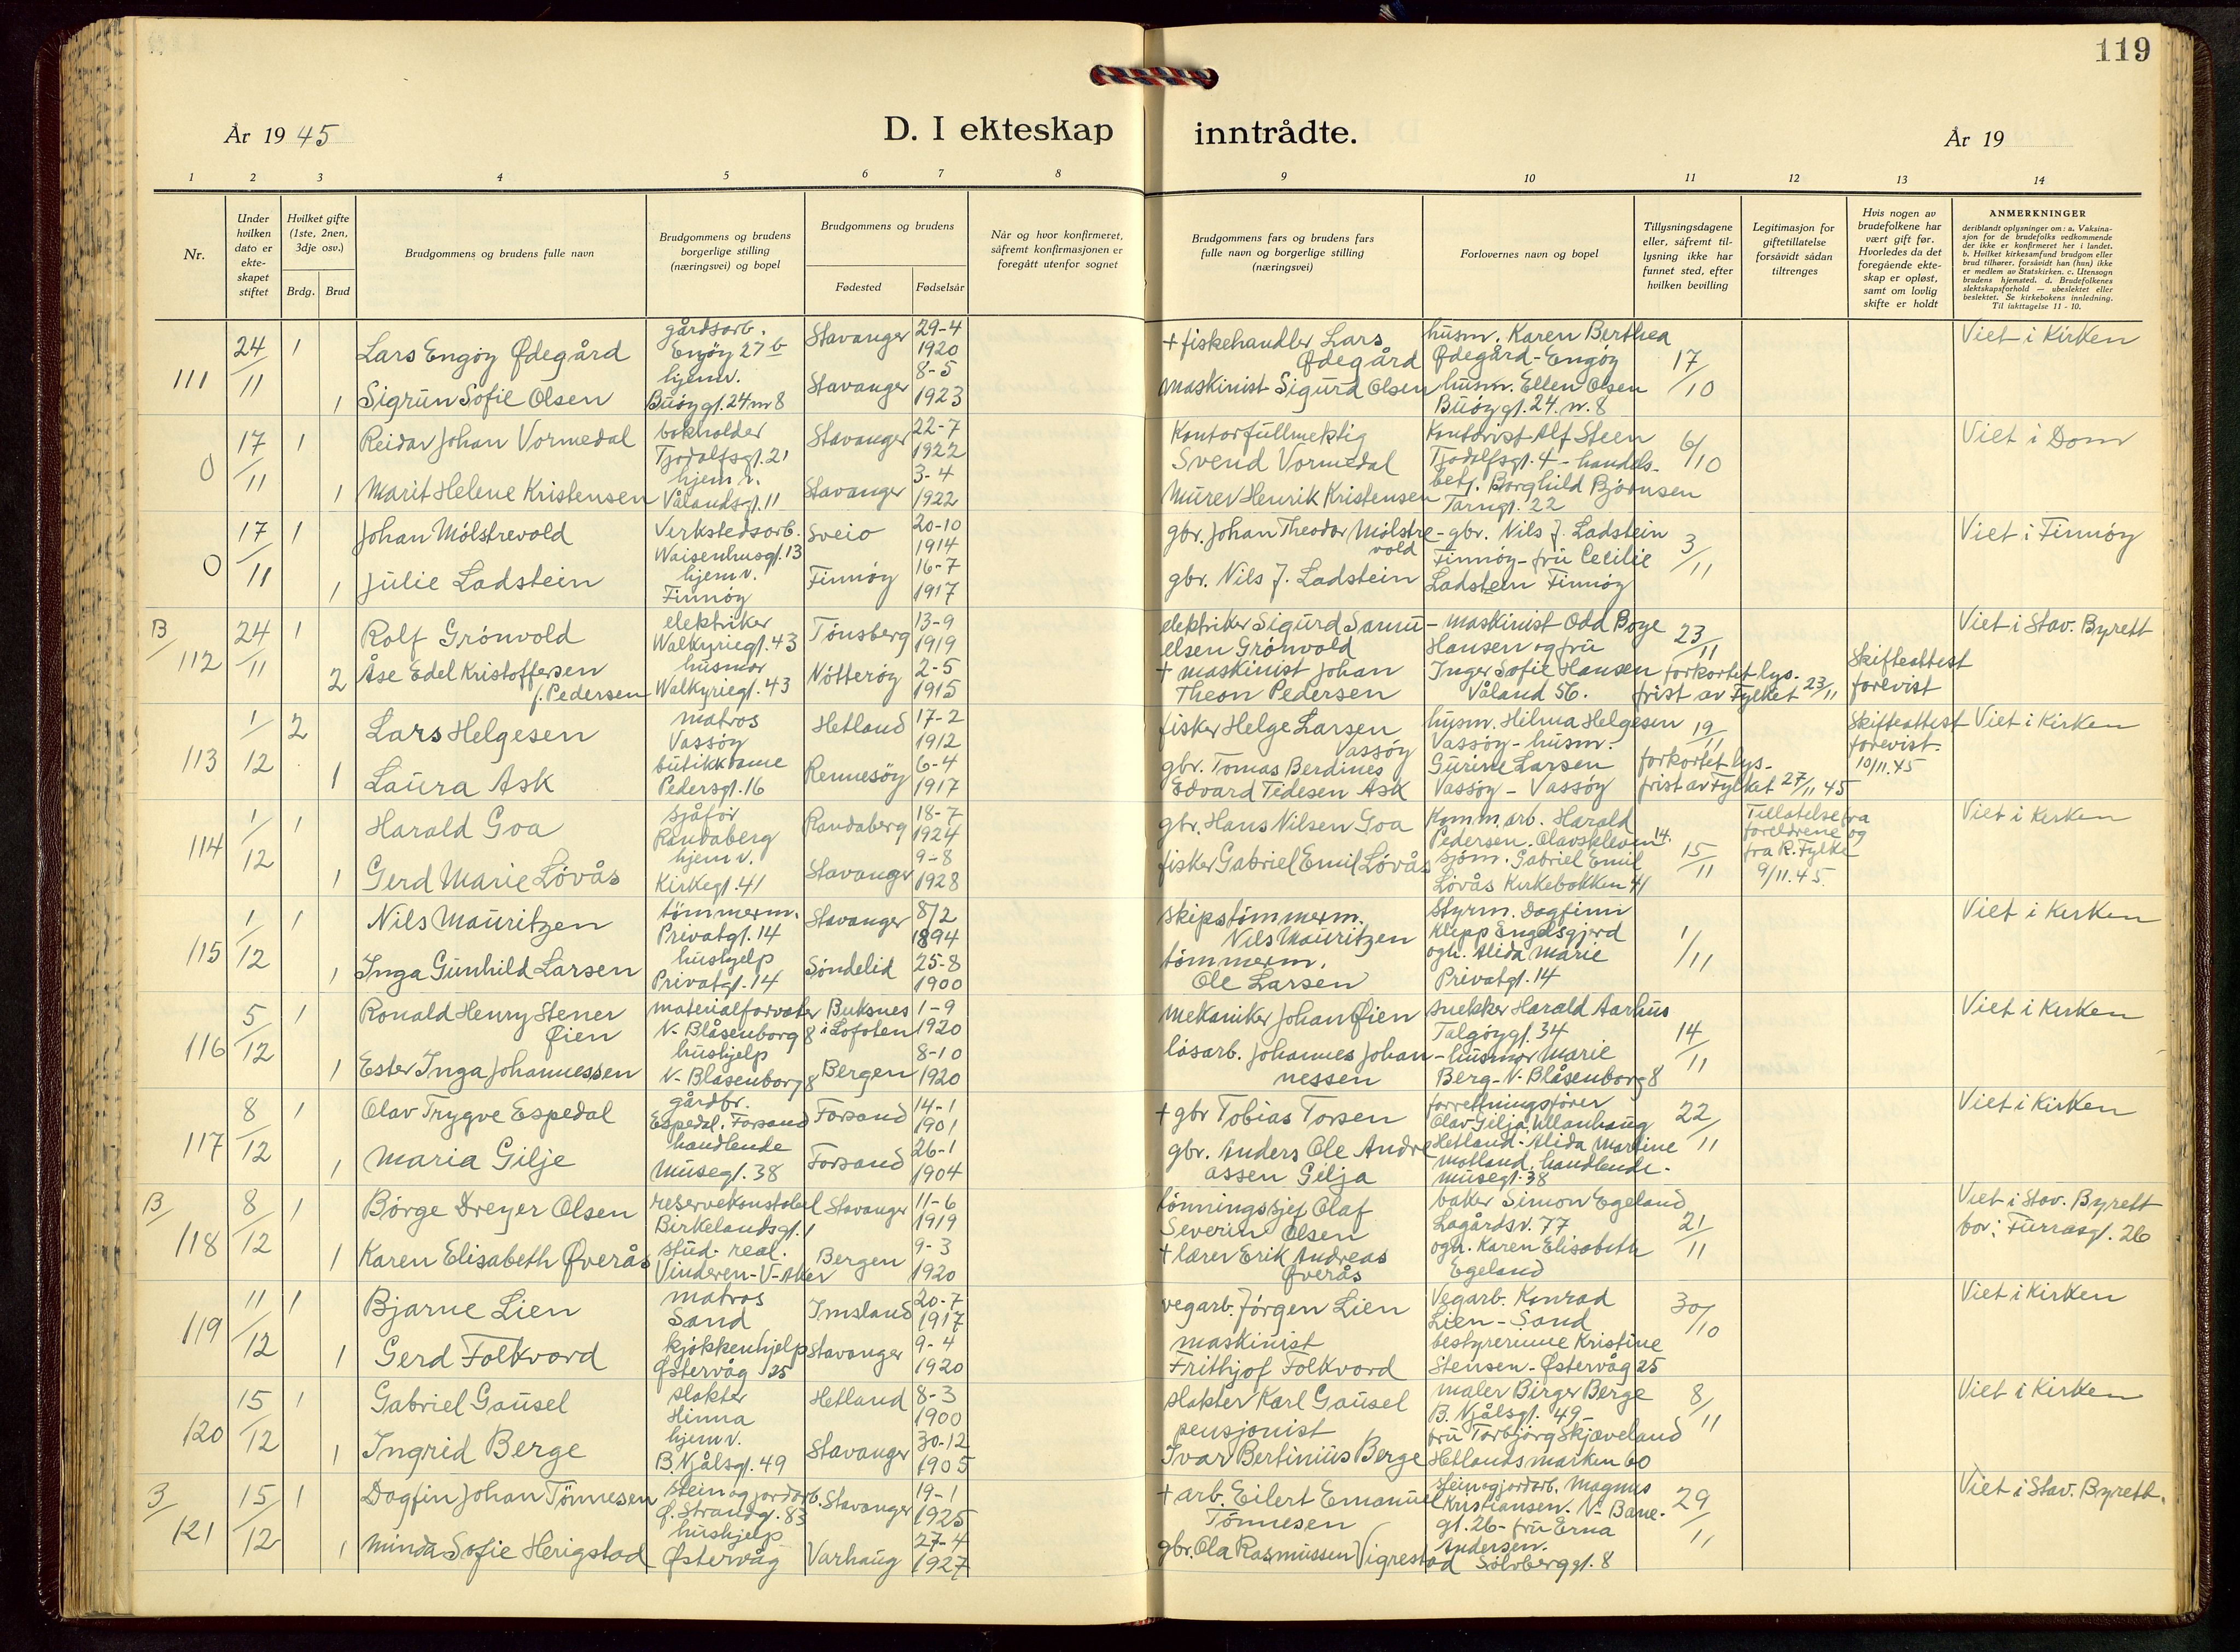 119
År 1945
D. I ekteskap inntrådte.
År 19
1 2 3 4 5 6 7 8 9 10 11 12 13 14
Nr.
Under hvilken dato er ekte-skapet stiftet
Hvilket gifte (1ste, 2nen, 3dje osv.)
Brdg. Brud
Brudgommens og brudens fulle navn
Brudgommens og brudens borgerlige stilling (næringsvei) og bopel
Brudgommens og brudens
Fødested Fødselsår
Når og hvor konfirmeret, såfremt konfirmasjonen er foregått utenfor sognet
Brudgommens fars og brudens fars fulle navn og borgerlige stilling (næringsvei)
Forlovernes navn og bopel
Tillysningsdagene eller, såfremt til-lysning ikke har funnet sted, efter hvilken bevilling
Legitimasjon for giftetillatelse forsåvidt sådan tiltrenges
Hvis nogen av brudefolkene har vært gift før. Hvorledes da det foregående ekte-skap er opløst, samt om lovlig skifte er holdt
ANMERKNINGER
deriblandt oplysninger om: a. Vaksina-sjon for de brudefolks vedkommende der ikke er konfirmeret her i landet. b. Hvilket kirkesamfund brudgom eller brud tilhører, forsåvidt han (hun) ikke er medlem av Statskirken. c. Utensogn brudens hjemsted. d. Brudefolkenes slektskapsforhold — ubeslektet eller beslektet. Se kirkebokens innledning. Til iakttagelse 11 - 10.
111 24/11 1 Lars Engøy Ødegård gårdsarb. Engøy 27 b Stavanger 29-4 1920 + fiskehandler Lars Ødegård husm. Karen Berthea Ødegård - Engøy 17/10 Viet i Kirken
1 Sigrun Sofie Olsen hjemv. Buøygt. 24 nr 8 Stavanger 8-5 1923 maskinist Sigurd Olsen husm. Ellen Olsen Buøygt. 24. n. 8
0 17/11 1 Reidar Johan Vormedal bokholder Tjodolfsgt. 21 Stavanger 22-7 1922 Kontorfullmektig Svend Vormedal Kontorist Alf Steen Tjodolfsgt. 4 - handels- 6/10 Viet i Dom
1 Marit Helene Kristensen hjemv. Vålandsgt. 11 Stavanger 3-4 1922 Murer Henrik Kristensen betj. Borghild Bjørnsen Tarngt. 22
0 17/11 1 Johan Mølstrevold Verkstedsarb. Waisenhusgt. 13 Sveio 20-10 1914 gbr. Johan Theodor Mølstre-vold gbr. Nils J. Ladstein Finnøy - fru Cecilie 3/11 Viet i Finnøy
1 Julie Ladstein hjemv. Finnøy Finnøy 16-7 1917 gbr. Nils J. Ladstein Ladstein Finnøy
B/112 24/11 1 Rolf Grønvold elektriker Walkyriegt. 43 Tønsberg 13-9 1919 elektriker Sigurd Samu-elsen Grønvold maskinist Odd Boye Hansen og fru 23/11 Viet i Stav. Byrett
2 Åse Edel Kristoffersen f. Pedersen husmor Walkyriegt. 43 Nøtterøy 2-5 1915 + maskinist Johan Theon Pedersen Inger Sofie Hansen Våland 56. forkortet lys-frist av Fylket 23/11 Skifteattest forevist
113 1/12 2 Lars Helgesen matros Vassøy Hetland 17-2 1912 fisker Helge Larsen Vassøy husm. Hilma Helgesen Vassøy - husm. 19/11 Skifteattest forevist 10/11.45 Viet i Kirken
1 Laura Ask butikkdame Pedersgt. 16 Rennesøy 6-4 1917 gbr. Tomas Berdines Edvard Tidesen Ask Gurine Larsen Vassøy - Vassøy forkortet lys-frist av Fylket 27/11 45
114 1/12 1 Harald Goa sjåfør Randaberg Randaberg 18-7 1924 gbr. Hans Nilsen Goa Komm. arb. Harald Pedersen. Olavskleven 14. 15/11 Tillatelse fra foreldrene og fra R. Fylke 9/11.45. Viet i Kirken
1 Gerd Marie Løvås hjemv. Kirkegt. 41 Stavanger 9-8 1928 fisker Gabriel Emil Løvås sjøm. Gabriel Emil Løvås Kirkebakken 41
115 1/12 1 Nils Mauritzen tømmerm. Privatgt. 14 Stavanger 8/2 1894 skipstømmerm. Nils Mauritzen Styrm. Dagfinn Klepp Engelsgjerd 1/11 Viet i Kirken
1 Inga Gunhild Larsen hushjelp Privatgt. 14 Søndelid 25-8 1900 tømmerm. Ole Larsen og h. Alida Marie Privatgt. 14
116 5/12 1 Ronald Henry Stener Øien materialforvalter N. Blåsenborg 8 Buksnes i Lofoten 1-9 1920 mekaniker Johan Øien snekker Harald Aarhus Talgøygt. 34 14/11 Viet i Kirken
1 Ester Inga Johannessen hushjelp N. Blåsenborg 8 Bergen 8-10 1920 løsarb. Johannes Johan-nessen husmor Marie Berg - N. Blåsenborg 8
117 8/12 1 Olav Trygve Espedal gårdbr. Espedal. Forsand Forsand 14-1 1901 + gbr Tobias Torsen forretningsfører Olav Gilja, Ullanhaug 22/11 Viet i Kirken
1 Maria Gilje handlende Musegt. 38 Forsand 26-1 1904 gbr. Anders Ole Andre-assen Gilja Hetland - Alida Martine Motland, handlende - Musegt. 38
B/118 8/12 1 Børge Dreyer Olsen reservekonstabel Birkelandsgt. 1 Stavanger 11-6 1919 lønningssjef Olaf Severin Olsen baker Simon Egeland Lagårdsv. 77 21/11 Viet i Stav. Byrett bor: Furrasgt. 26
1 Karen Elisabeth Øverås stud. real. Vinderen - V-Aker Bergen 9-3 1920 + lærer Erik Andreas Øverås og h. Karen Elisabeth Egeland
119 11/12 1 Bjarne Lien matros Sand Imsland 20-7 1917 vegarb. Jørgen Lien Vegarb. Konrad Lien - Sand 30/10 Viet i Kirken
1 Gerd Folkvord kjøkkenhjelp Østervåg 25 Stavanger 9-4 1920 maskinist Frithjof Folkvord bestyrerinne Kristine Stensen - Østervåg 25
120 15/12 1 Gabriel Gausel slakter Hinna Hetland 8-3 1900 slakter Karl Gausel maler Birger Berge B. Njålsgt. 49 8/11 Viet i Kirken
1 Ingrid Berge hjemv. B. Njålsgt. 49 Stavanger 30-12 1905 pensjonist Ivar Bertinius Berge fru Torbjørg Skjæveland Hetlandsmarken 60
B/121 15/12 1 Dagfin Johan Tønnesen stein og jordarb. Ø. Strandgt. 83 Stavanger 19-1 1925 + arb. Eilert Emanuel Tønnesen stein og jordarb. Magnus Kristiansen. N. Bane-gt. 26 - fru Erna 29/11 Viet i Stav. Byrett.
1 Minda Sofie Herigstad hushjelp Østervåg Varhaug 27-4 1927 gbr. Ola Rasmussen Vigrestad Andersen. Sølvberggt. 8